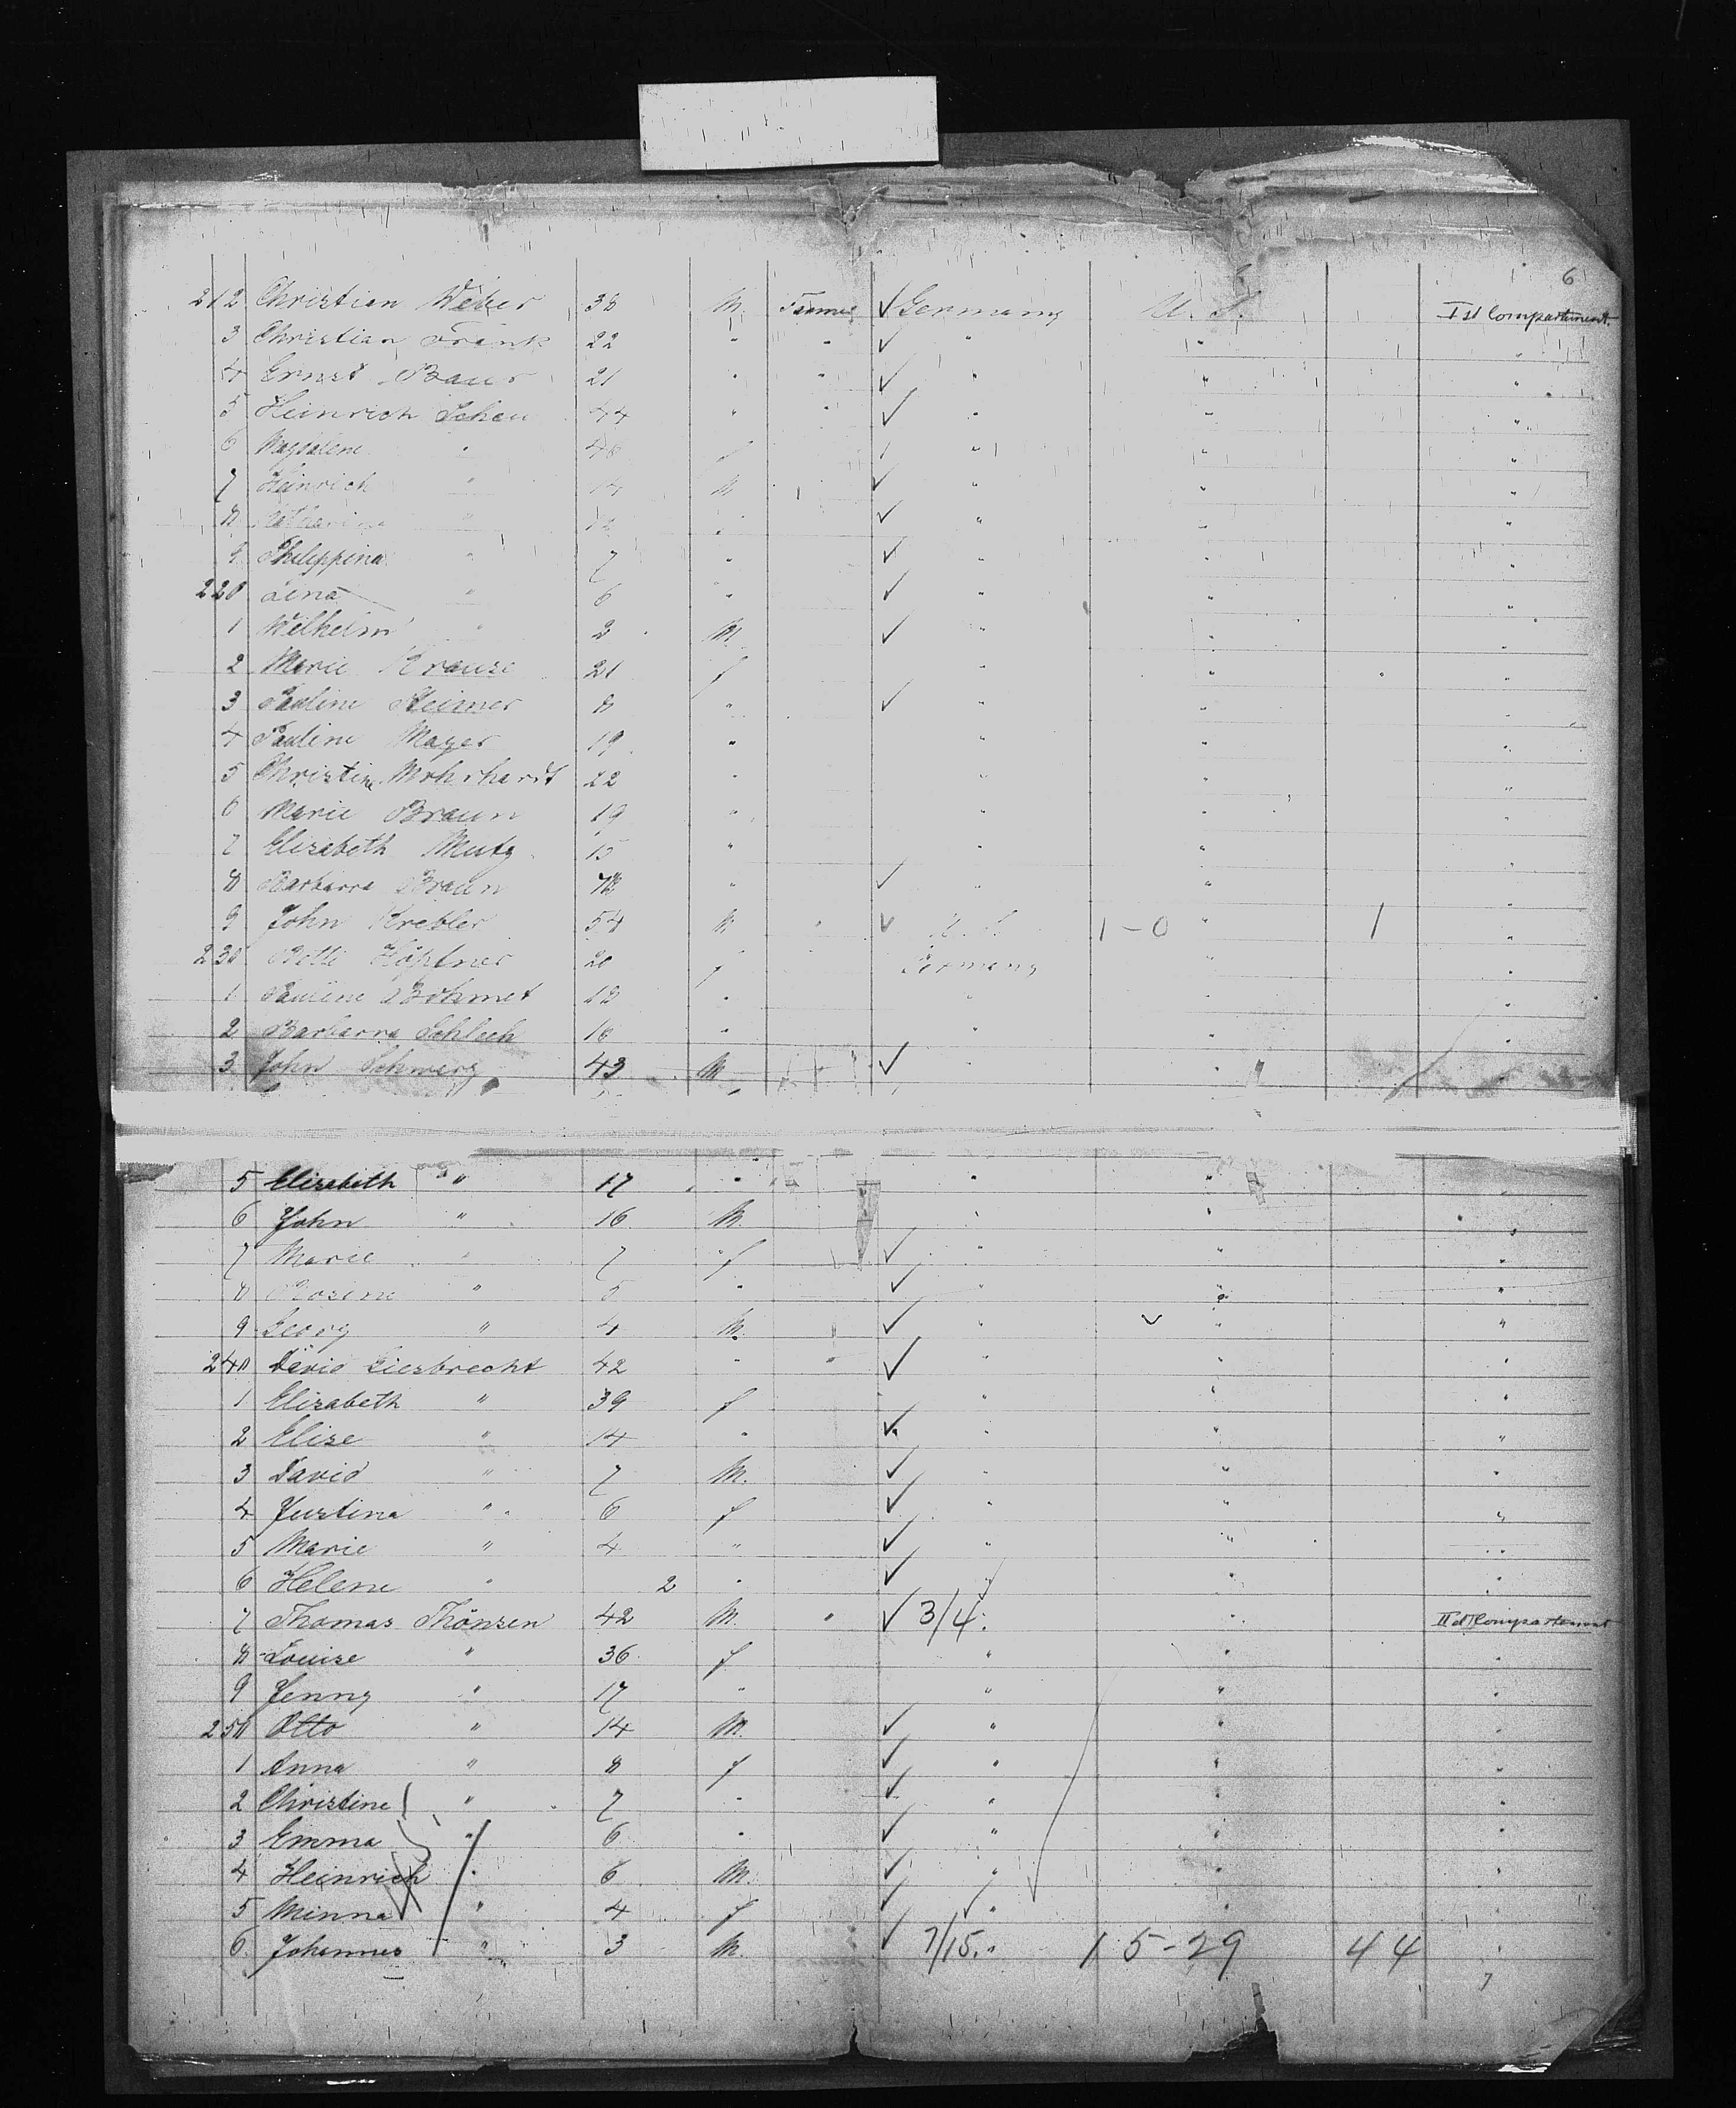 6
212 Christian Weber 38 M. Farmer ✓ Germany U. S. Ist Compartement.
3 Christian Frank 22 " " ✓ " " "
4 Ernst Bauer 21 " " ✓ " " "
5 Heinrich Scheu 44 " " ✓ " " "
6 Magdalene " 46 f " " "
7 Heinrich " 14 M ✓ " "
8 Katharina " " ✓ " " "
9 Philippina " 7 " ✓ " " "
220 Lina " 6 " ✓ " " "
1 Wilhelm " 2 M. ✓ " " "
2 Marie Krause 21 f " " "
3 Pauline 8 " ✓ " " "
4 Pauline Mayer 19 " " " "
5 Christine Mohrhardt 22 " " " "
6 Marie Braun 19 " " " "
7 Elisabeth Mutz 15 " " " "
8 Barbarra Braun " ✓ " " "
9 John Krebler 54 M. " ✓ U. S. 1-0 " 1 "
230 Höpfner 20 f Germany " "
1 Pauline Böhmet " " " "
2 Barbarra Schlech 16 " " " "
3 John Schwerz 43 M ✓ " " "
5 Elisabeth " 17 " " " "
6 John " 16 M. " " "
7 Marie " 7 f ✓ " " "
8 Rosine " 5 " ✓ " " "
9 Georg " 4 M. ✓ " " "
240 David Giesbrecht 42 " " ✓ " " "
1 Elisabeth " 39 f " " "
2 Elise " 14 " ✓ " " "
3 David " 7 M. ✓ " " "
4 Justina " 6 f ✓ " " "
5 Marie " 4 " ✓ " " "
6 Helene " 2 " ✓ " " "
7 Thomas Thönsen 42 M. " ✓ 3/4 " " IId Compartement
8 Louise " 36 f " " "
9 Jenny " 17 " " " "
250 Otto " 14 M. ✓ " " "
1 Anna " 8 f ✓ " " "
2 Christine " 7 " ✓ " " "
3 Emma " 6 " ✓ " " "
4 Heinrich " 6 M. ✓ " " "
5 Minna " 4 f ✓ " " "
6 Johannes " 3 M. ✓ 7/15 " 15-29 44 "